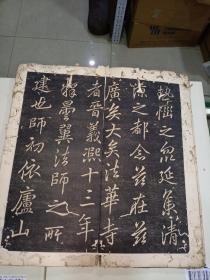 熱惱之眾延集清
涼之都念茲在茲
廣矣大矣法華寺
者晉義熙十三年
釋曇翼法師之所
建也師初依廬山